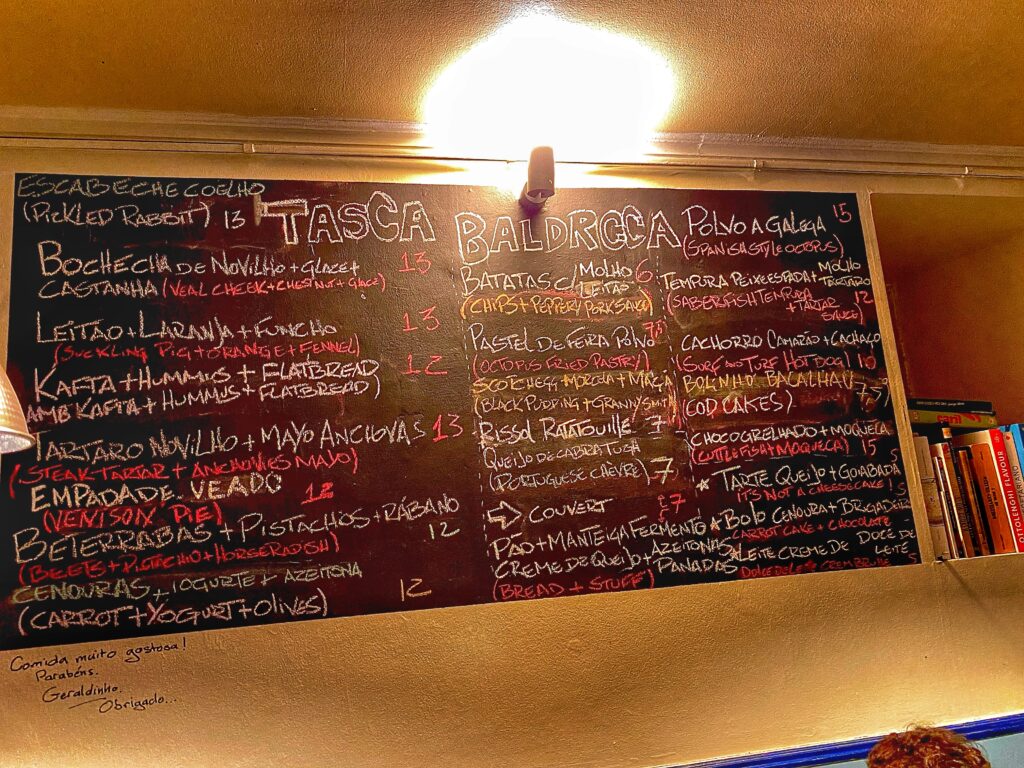 ESCABECHE COELHO
(PICKLED RABBIT) 13
TASCA BALDRACCA
BOCHECHA DE NOVILHO + GLACE + 13
CASTANHA (VEAL CHEEK + CHESTNUT + GLACE)
LEITÃO + LARANJA + FUNCHO 13
(SUCKLING PIG + ORANGE + FENNEL)
KAFTA + HUMMUS + FLATBREAD 12
(LAMB KAFTA + HUMMUS + FLATBREAD)
TARTARO NOVILHO + MAYO ANCHOVAS 13
(STEAK TARTAR + ANCHOVIES MAYO)
EMPADA DE VEADO 12
(VENISON PIE)
BETERRABAS + PISTACHOS + RÁBANO
12
(BEETS + PISTACHIO + HORSERADISH)
CENOURAS + IOGURTE + AZEITONA 12
(CARROT + YOGURT + OLIVES)
BATATAS C/ MOLHO LEITÃO 6
(CHIPS + PEPPERY PORK SAUCE)
PASTEL DE FEIRA POLVO
(OCTOPUS FRIED PASTRY)
SCOTCH EGG MORCELA + MAÇA
(BLACK PUDDING + GRANNY SMITH)
RISSOL RATATOUILLE 7
QUEIJO DE CABRA TUGA
(PORTUGUESE CHEVRE) 7
COUVERT 7
PÃO + MANTEIGA FERMENTO
CREME DE QUEIJO + AZEITONAS PANADAS
(BREAD + STUFF)
POLVO A GALEGA 15
(SPANISH STYLE OCTOPUS)
TEMPURA PEIXE ESPADA + MOLHO TARTARO
(SABERFISH TEMPURA + TARTAR SAUCE) 12
CACHORRO CAMARÃO + CACHAÇO
(SURF AND TURF HOT DOG) 10
BOLINHO BACALHAU
(COD CAKES)
CHOCO GRELHADO + MOQUECA
(CUTTLEFISH + MOQUECA) 15
TARTE QUEIJO + GOIABADA 5
IT'S NOT A CHEESECAKE!
BOLO CENOURA + BRIGADEIRO
CARROT CAKE + CHOCOLATE
LEITE CREME DE DOCE DE LEITE
5
OTTOLENGHI FLAVOUR
Comida muito gostosa!
Parabéns.
Geraldinho.
Obrigado...